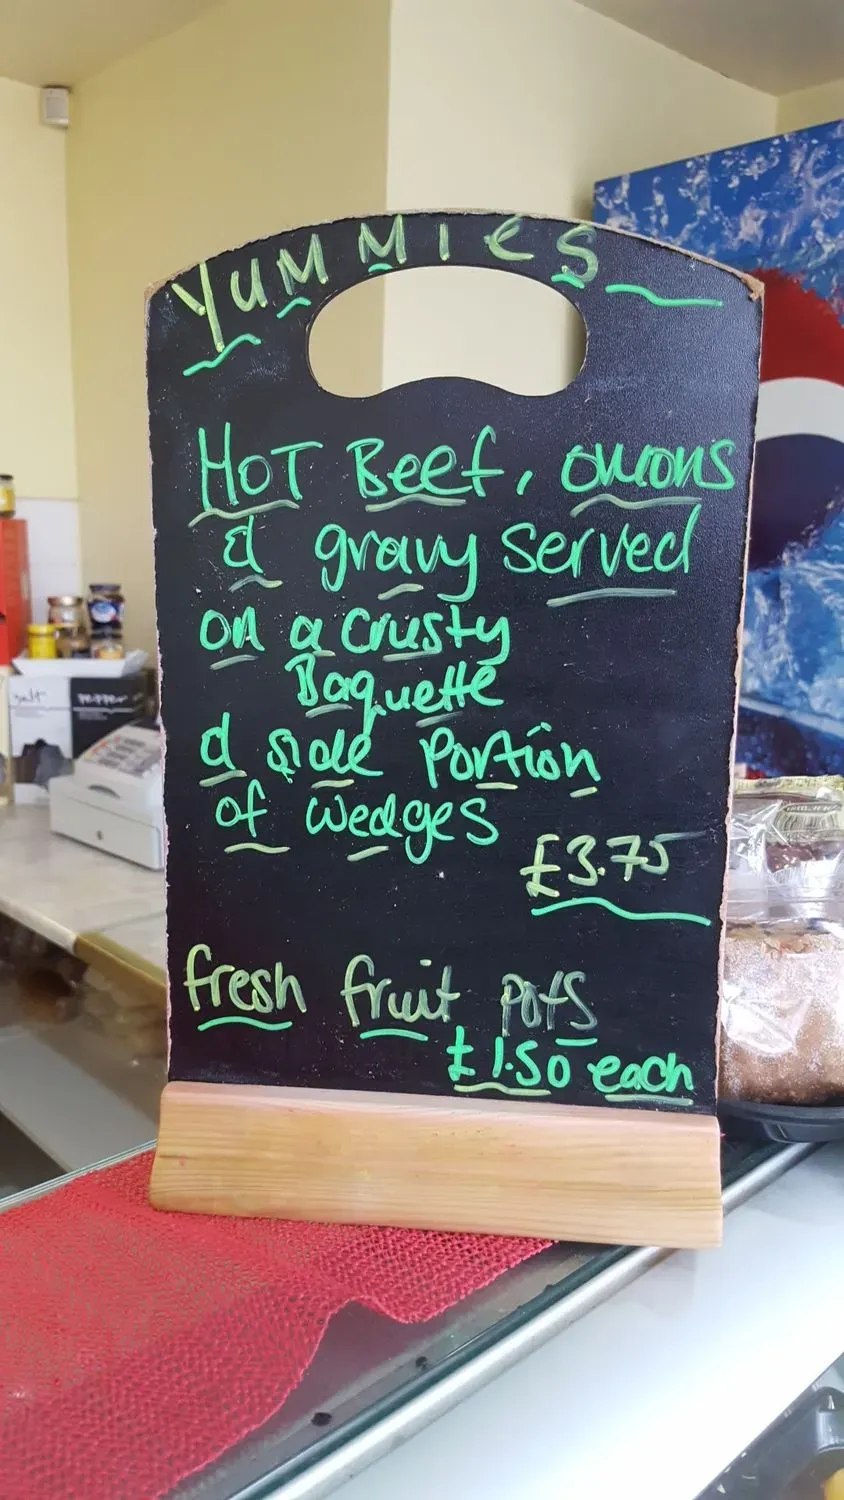 YUMMIES
HOT Beef, onions
& gravy served
on a crusty
Baguette
& side portion
of wedges
£3.75
fresh fruit pots
£1.50 each
salt
pepper